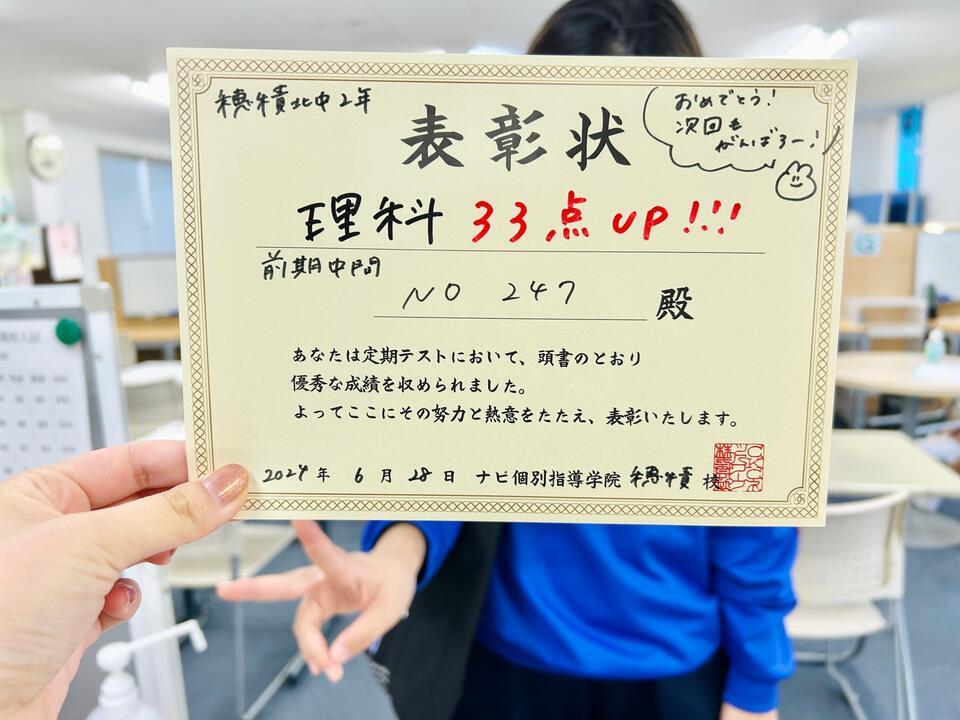 穂積北中2年
表彰状
おめでとう!
次回も
がんばろー!
理科 33点UP!!!
前期中間
NO 247 殿
あなたは定期テストにおいて、頭書のとおり
優秀な成績を収められました。
よってここにその努力と熱意をたたえ、表彰いたします。
2024年 6月 28日 ナビ個別指導学院 穂積 校